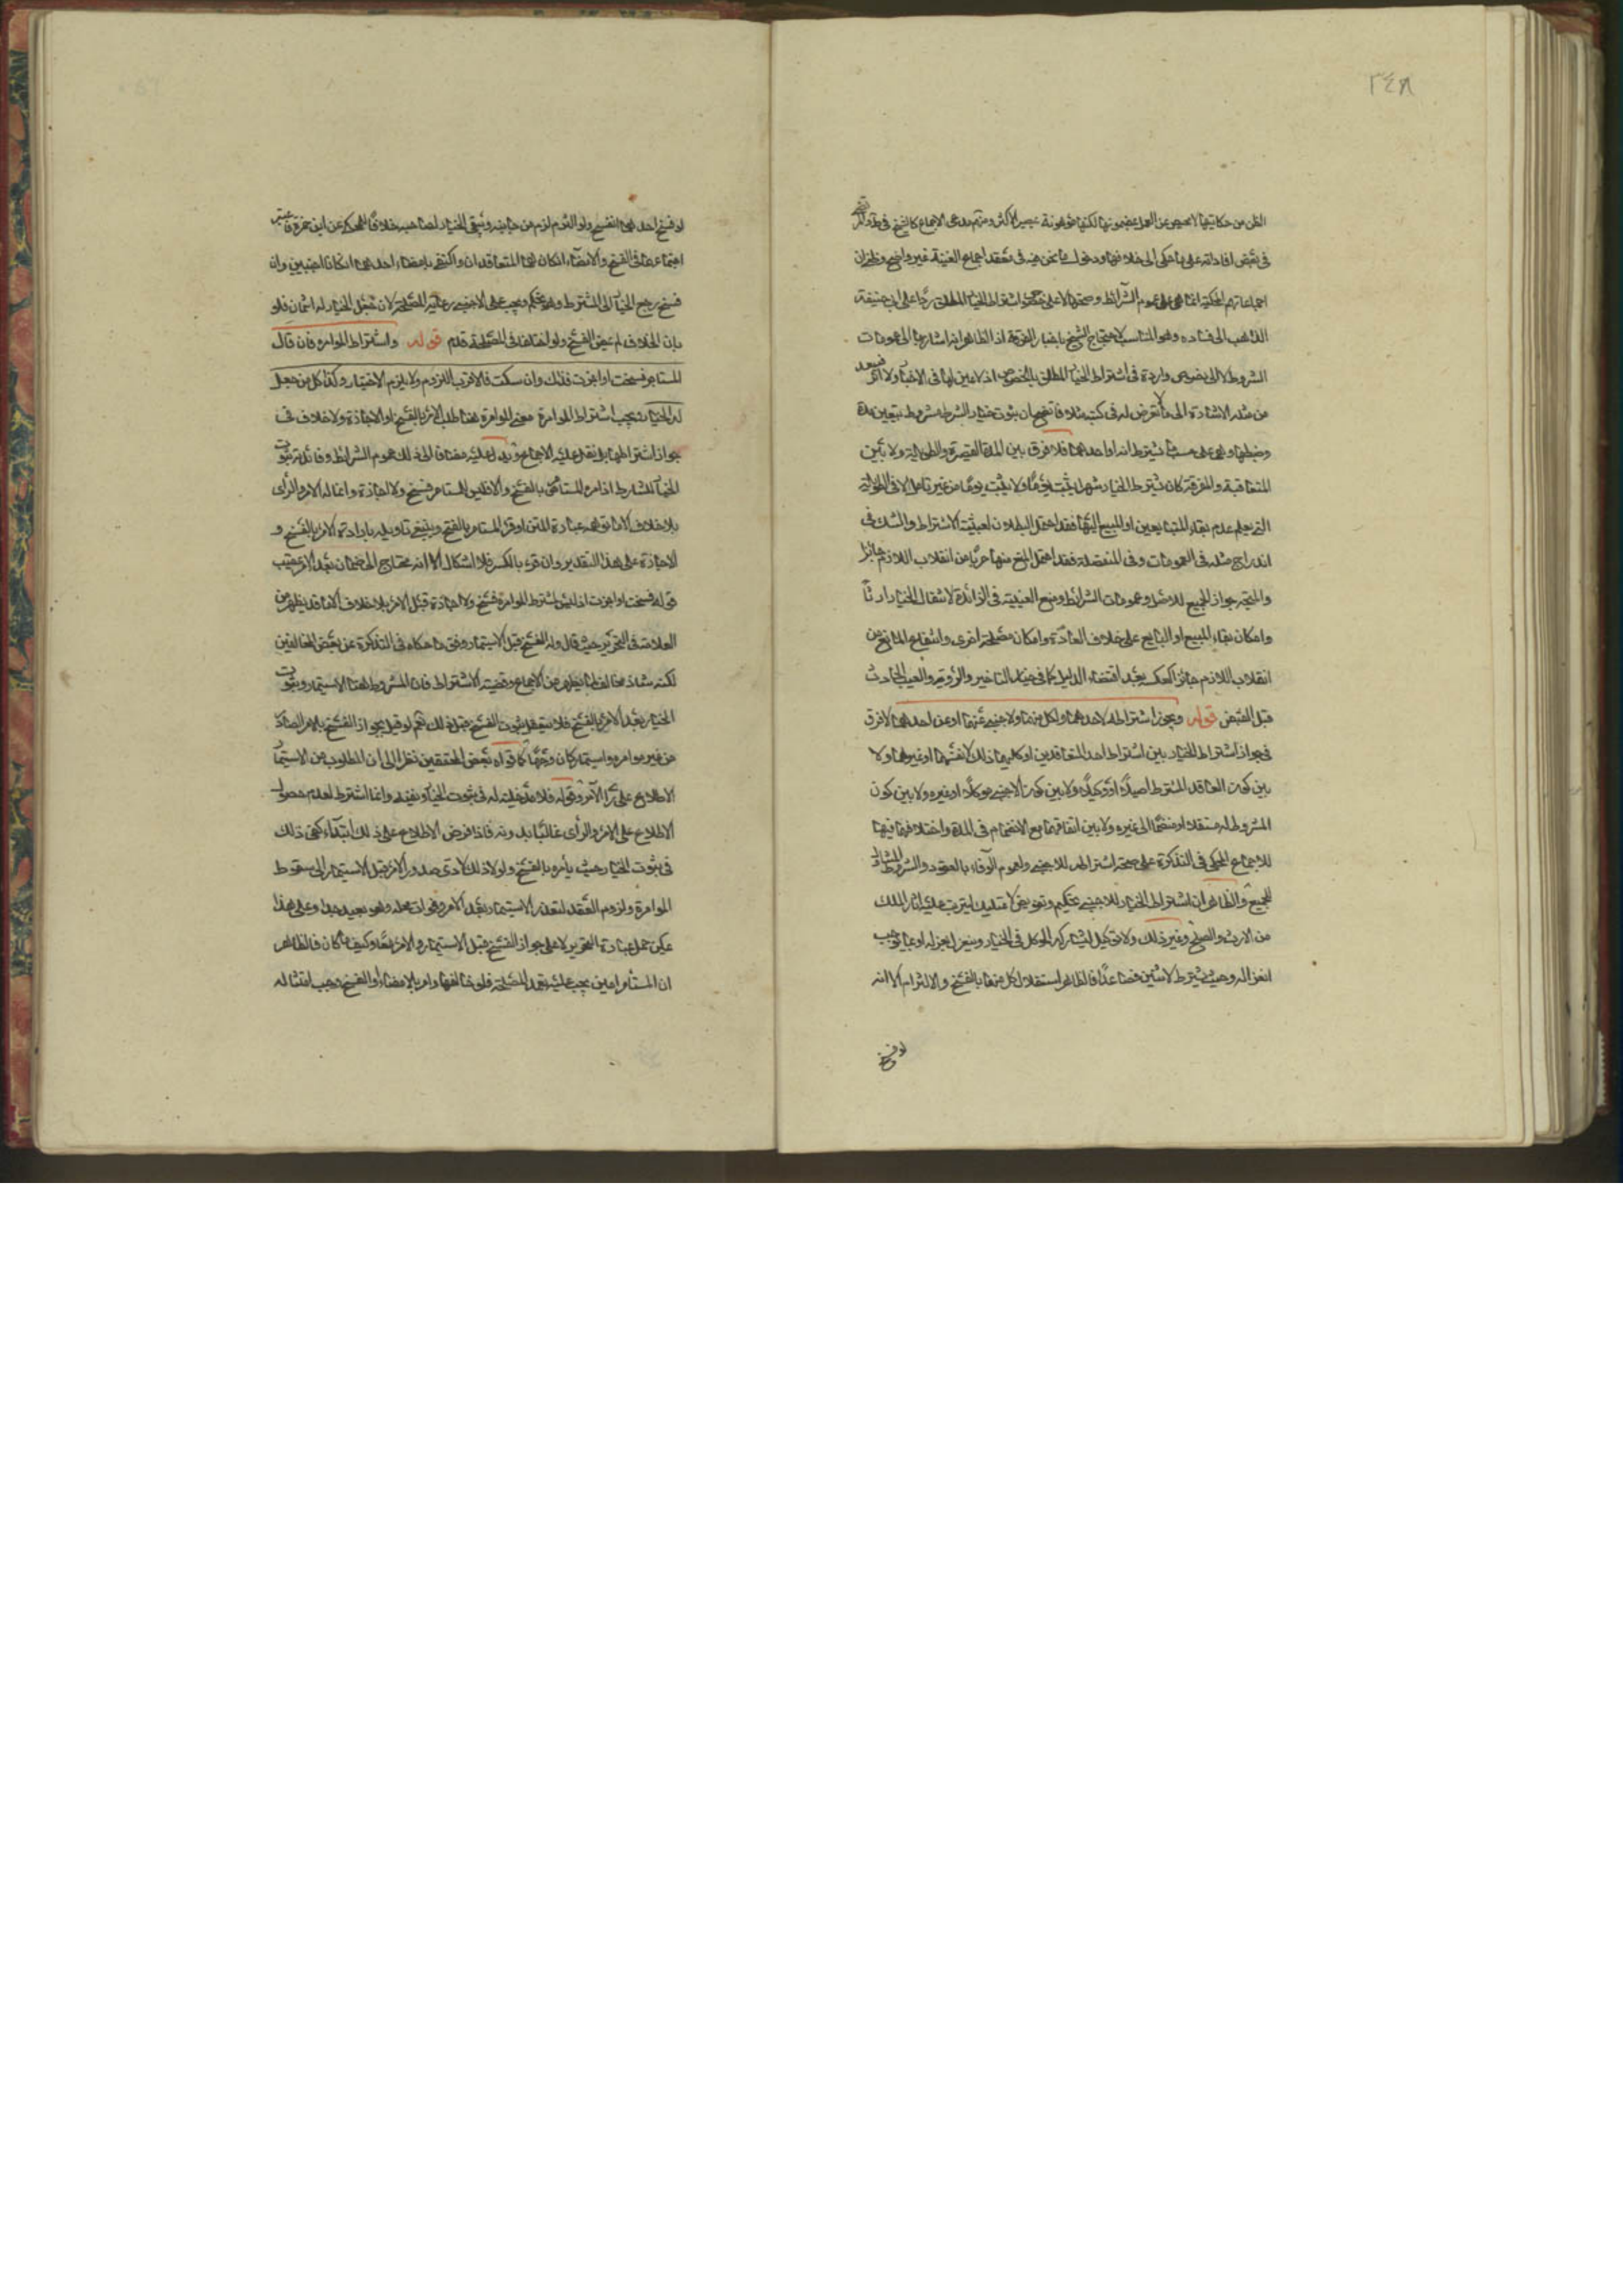 ٢٤٨
الظن من حكايتها لا محيص عن العمل بمضمونها لكنها موهونة بمصير الأكثر ومنهم مدعى الاجماع كالشيخ في
في بعض افاداته على ما حكى الى خلافها ودخول ما نحن فيه في معقد اجماع الغنية غير واضح وظني ان
اجماعاتهم المحكية انما هى على عموم الشرائط وصحتها لا على اشتراط الخيار المطلق ردا على ابى حنيفة
الذاهب الى فساده وهو المناسب لاحتجاج الشيخ باخبار الفرقة اذ الظاهر انه اشار بها الى عمومات
الشروط لا الى نصوص واردة في اشتراط الخيار المطلق بالخصوص اذ لا عين لها في الاخبار ولا اثر فيبعد
من مثله الاشارة الى ما لا تعرض له في كتبه فاتضح ان ثبوت خيار الشرط مشروط بتعيين مدة
وضبطها وهى على حسب ما يشترطانه او احدهما فلا فرق بين المدة القصيرة والطويلة ولا بين
المتعاقبة والمفرقة كان يشترط الخيار شهرا يثبت يوما ولا يثبت يوما من غير تامل الا في الطويلة
التى يعلم عدم بقاء المتبايعين او المبيع اليها فقد احتمل البطلان لعبثية الاشتراط والشك في
اندراج مثله في العمومات وفى المنفصلة فقد احتمل المنع منها حذرا من انقلاب اللازم جائزا
والمتجه جواز الجميع للاصل وعمومات الشرائط ومنع العبثية في الزائدة لانتقال الخيار ارثا
وامكان بقاء المبيع او البايع على خلاف العادة وامكان مصلحة اخرى وانتفاء المانع من
انقلاب اللازم جائزا كعكسه بعد اقتضاء الدليل كما في خيار التاخير والرؤية والعيب الحادث
قبل القبض قوله ويجوز اشتراطه لاحدهما ولكل منهما ولاجنبى عنهما او عن احدهما لا فرق
في جواز اشتراط الخيار بين اشتراط احد المتعاقدين او كليهما ذلك لانفسهما او غيرهما ولا
بين كون العاقد المشترط اصيلا او وكيلا ولا بين كون الاجنبى موكلا او غيره ولا بين كون
المشروط له مستقلا او منضما الى غيره ولا بين اتفاقهما مع الانضمام في المدة واختلافهما فيها
للاجماع المحكى في التذكرة على صحة اشتراطه للاجنبى ولعموم الوفاء بالعقود والشروط الشامل
للجميع والظاهر ان اشتراط الخيار للاجنبى تحكيم وتفويض لا تمليك ليترتب عليه اثار الملك
من الارث والصلح وغير ذلك ولا توكيل ليشاركه الموكل في الخيار وينعزل بعزله او بما يوجب
انعزاله وحيث يشترط لاثنين فصاعدا فالظاهر استقلال كل منهما بالفسخ والالتزام الا انه
لو فسخ
لو فسخ احدهما انفسخ ولو التزم لزم من جانبه وبقى الخيار لصاحبه خلافا للمحكى عن ابن حمزة فاعتبر
اجتماعهما في الفسخ والامضاء ان كان لهما المتعاقدان واكتفى بامضاء احدهما ان كانا اجنبيين وان
فسخ رجع الخيار الى المشترط وهو تحكم ويجب على الاجنبى رعاية المصلحة لان جعل الخيار له ائتمان فلو
بان الخلاف لم يمض الفسخ ولو اختلفا في المصلحة قدم قوله واشتراط المؤامرة فان قال
المستامر فسخت او اجزت فذلك وان سكت فالاقرب اللزوم ولا يلزم الاختيار وكذا كل من جعل
له الخيار يجب اشتراط المؤامرة معنى المؤامرة هنا طلب الامر بالفسخ او الاجازة ولا خلاف في
جواز اشتراطها بل نقل عليه الاجماع ويدل عليه مضافا الى ذلك عموم الشرائط وفائدته ثبوت
الخيار للشارط اذا امره المستامر بالفسخ والا فليس للمستامر فسخ ولا اجازة وانما له الامر والرأى
بلا خلاف الا ما توهمه عبارة المتن لو قرء المستامر بالفتح وينبغى تاويله بارادة الامر بالفسخ و
الاجازة على هذا التقدير وان قرء بالكسر فلا اشكال الا انه يحتاج الى ضمان بعد الامر عقيب
قوله فسخت او اجزت اذ ليس لمشترط المؤامرة فسخ ولا اجازة قبل الامر بلا خلاف الا ما قد يظهر من
العلامة في التحرير حيث قال وله الفسخ قبل الاستيمار وفق ما حكاه في التذكرة عن بعض المخالفين
لكنه شاذ مخالف لما يظهر من الاجماع وقضية الاشتراط فان المشروط هنا الاستيمار وثبوت
الخيار بعد الامر بالفسخ فلا يتعقل ثبوت الفسخ قبل ذلك نعم لو قيل بجواز الفسخ بالامر الصادر
من غير مؤامره واستيمار كان وجها كما قواه بعض المحققين نظرا الى ان المطلوب من الاستيمار
الاطلاع على راى الآمر وقوله فلا مدخلية له في ثبوت الخيار ونفيه وانما اشترط لعدم حصول
الاطلاع على الامر والرأى غالبا بدونه فاذا فرض الاطلاع على ذلك ابتداء كفى ذلك
في ثبوت الخيار حيث يأمره بالفسخ ولولا ذلك لادى صدور الامر قبل الاستيمار الى سقوط
المؤامرة ولزوم العقد لتعذر الاستيمار بعد الامر وفوات محله وهو بعيد جدا وعلى هذا
يمكن حمل عبارة التحرير لا على جواز الفسخ قبل الاستيمار والامر معا وكيف ما كان فالظاهر
ان المستأمر امين يجب عليه تعمد المصلحة فلو خالفها وامر بالامضاء او الفسخ وجب امتثاله